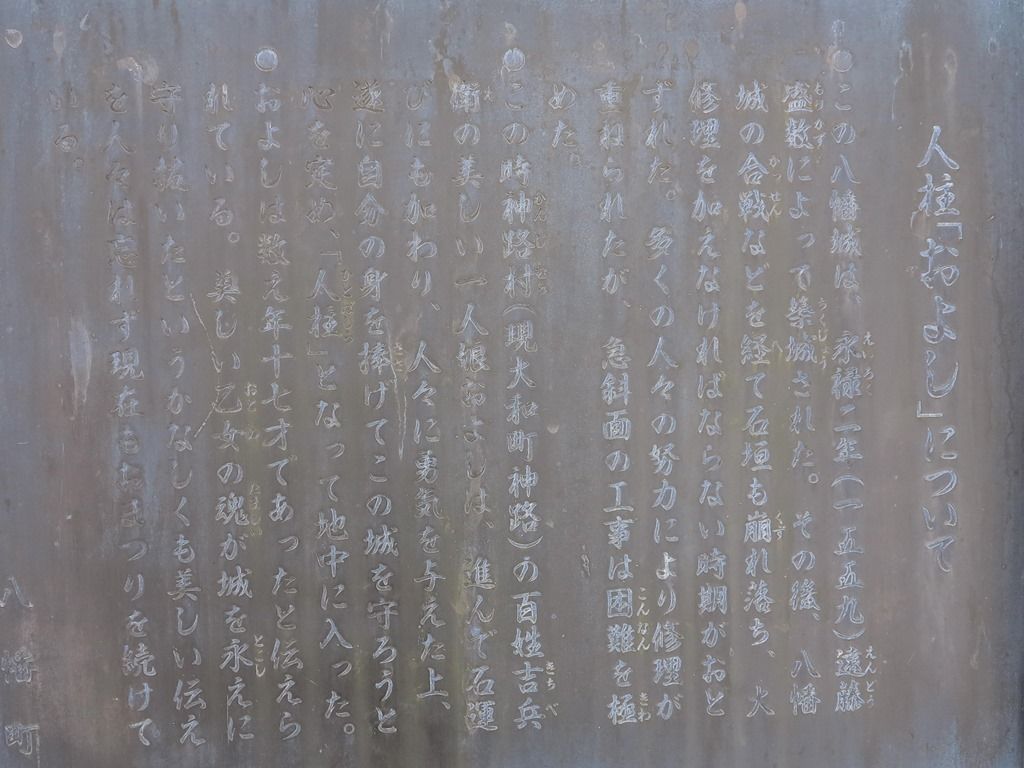 人柱「およし」について
●この八幡城は、永禄二年(一五五九)遠藤
盛数によって築城された。その後、八幡
城の合戦などを経て石垣も崩れ落ち、大
修理を加えなければならない時期がおと
ずれた。多くの人々の努力により修理が
重ねられたが、急斜面の工事は困難を極
めた。
●この時神路村(現大和町神路)の百姓吉兵
衛の美しい一人娘およしは、進んで石運
びにも加わり、人々に勇気を与えた上、
遂に自分の身を捧げてこの城を守ろうと
心を定め、「人柱」となって地中に入った。
●およしは数え年十七才であったと伝えら
れている。美しい乙女の魂が城を永えに
守り抜いたといううかなしくも美しい伝え
を人々は忘れず現在もおまつりを続けて
いる。
八幡町